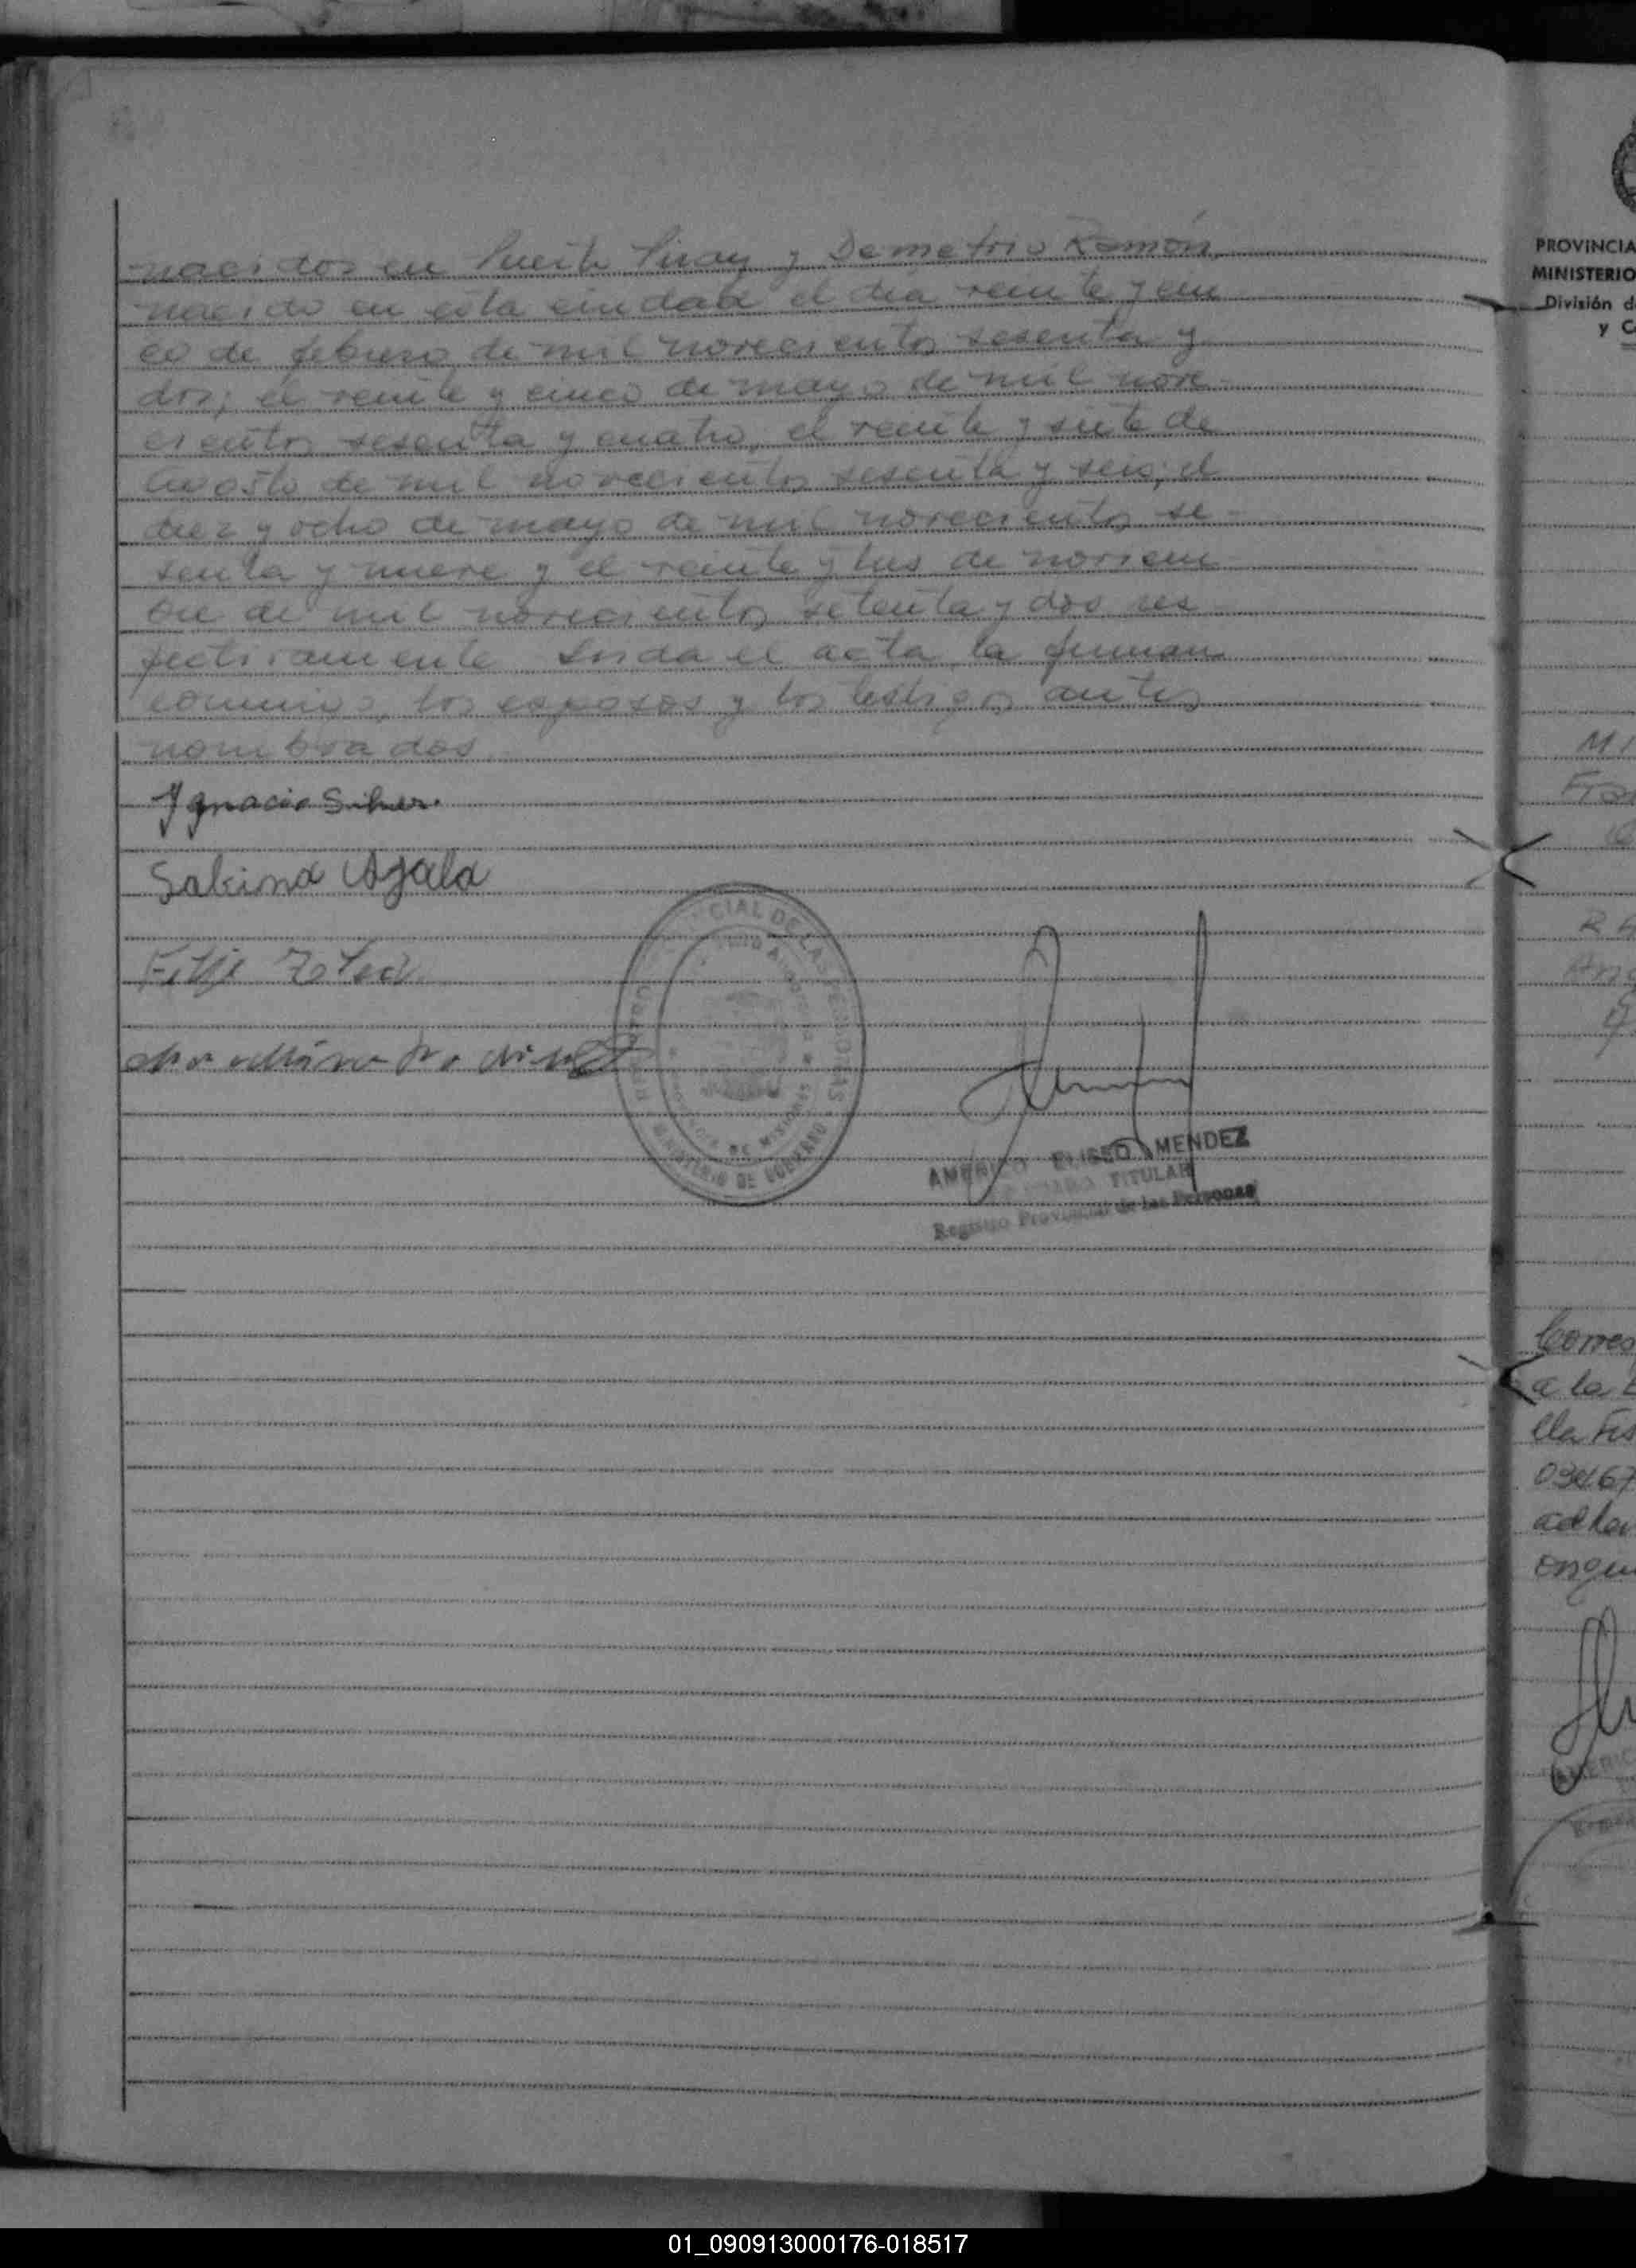 nacidos en Puerto Piray y Demetrio Ramón,
nacido en esta ciudad el dia veinte y cin
co de febrero de mil novecientos sesenta y
dos; el veinte y cinco de mayo de mil nove-
cientos sesenta y cuatro, el veinte y siete de
agosto de mil novecientos sesenta y seis; el
diez y ocho de mayo de mil novecientos se-
senta y nueve y el veinte y tres de noviem
bre de mil novecientos setenta y dos res
pectivamente Leida el acta la firman
conmigo, los esposos y los testigos antes
nombrados
Ignacio
Sabina Ayala
CIAL DE LAS PERSONAS
MINISTERIO DE GOBIERNO
DE MISIONES
AMERICO ELISEO MENDEZ
TITULAR
Registro Provincial de las Personas
PROVINCIA
MINISTERIO
División d
y C
Corres
a la
lla
adher
01_090913000176-018517